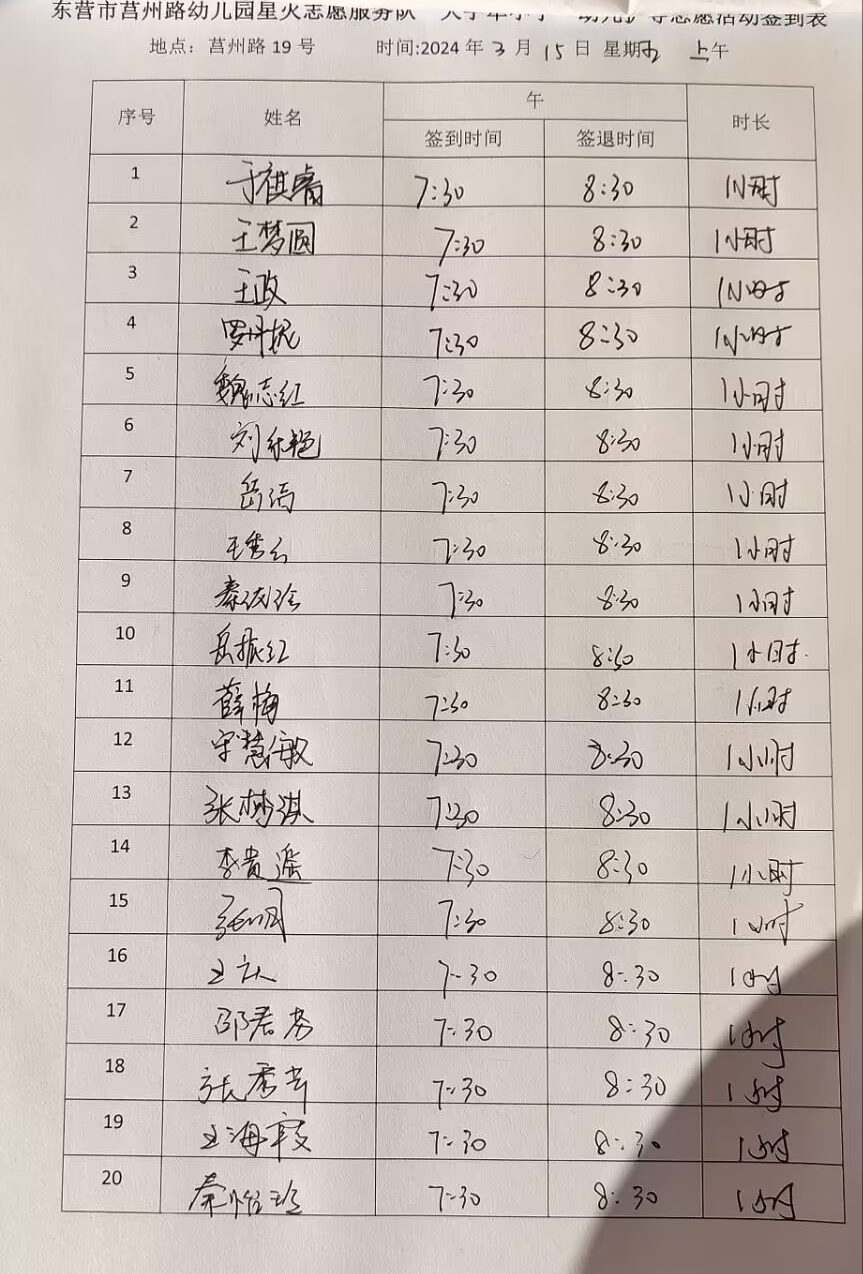 东营市莒州路幼儿园星火志愿服务队“大手牵小手 幼儿护导志愿活动签到表
地点：莒州路 19 号 时间:2024 年 3 月 15 日 星期五 上午
序号 姓名 午 时长
签到时间 签退时间
1 于祺睿 7:30 8:30 1小时
2 王梦圆 7:30 8:30 1小时
3 王政 7:30 8:30 1小时
4 罗丹妮 7:30 8:30 1小时
5 魏志红 7:30 8:30 1小时
6 刘 艳 7:30 8:30 1小时
7 岳 7:30 8:30 1小时
8 王秀云 7:30 8:30 1小时
9 秦 7:30 8:30 1小时
10 岳振红 7:30 8:30 1小时
11 薛梅 7:30 8:30 1小时
12 宋慧敏 7:30 8:30 1小时
13 张梦淇 7:30 8:30 1小时
14 李贵遥 7:30 8:30 1小时
15 张 7:30 8:30 1小时
16 王 7:30 8:30 1小时
17 邵君芬 7:30 8:30 1小时
18 张秀芹 7:30 8:30 1小时
19 王海霞 7:30 8:30 1小时
20 秦怡班 7:30 8:30 1小时